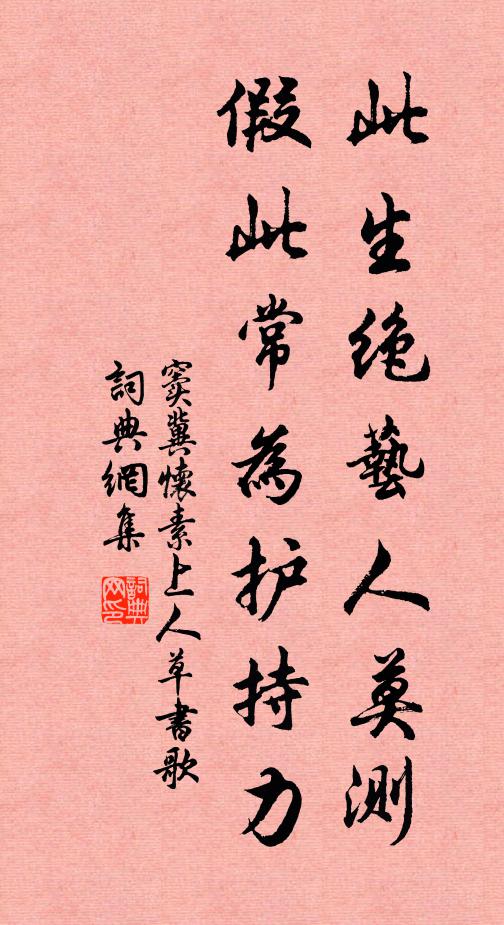 此生绝藝人莫測
假此常為护持力
窦冀懷素上人草書歌
詞典網集
詞典
网印